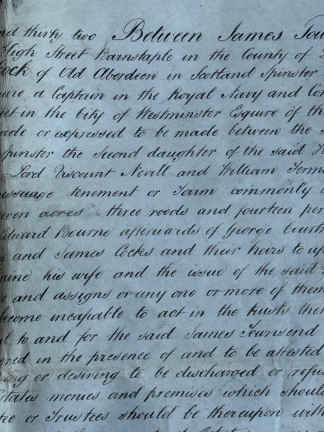 thirty two Between James
High Street Barnstaple in the County of
of Old Aberdeen in Scotland Spinster
a Captain in the Royal Navy and
in the City of Westminster Esquire of the
or expressed to be made between the
Spinster the Second daughter of the said
Lord Viscount Nevill and William
tenement or Farm commonly
acres three roods and fourteen
Edward Bourne afterwards of George
and James Cocks and their heirs to
his wife and the issue of the said
and assigns or any one or more of them
become incapable to act in the trusts
to and for the said James Townsend
in the presence of and to be attested
or desiring to be discharged or
monies and premises which should
or Trustees should be thereupon